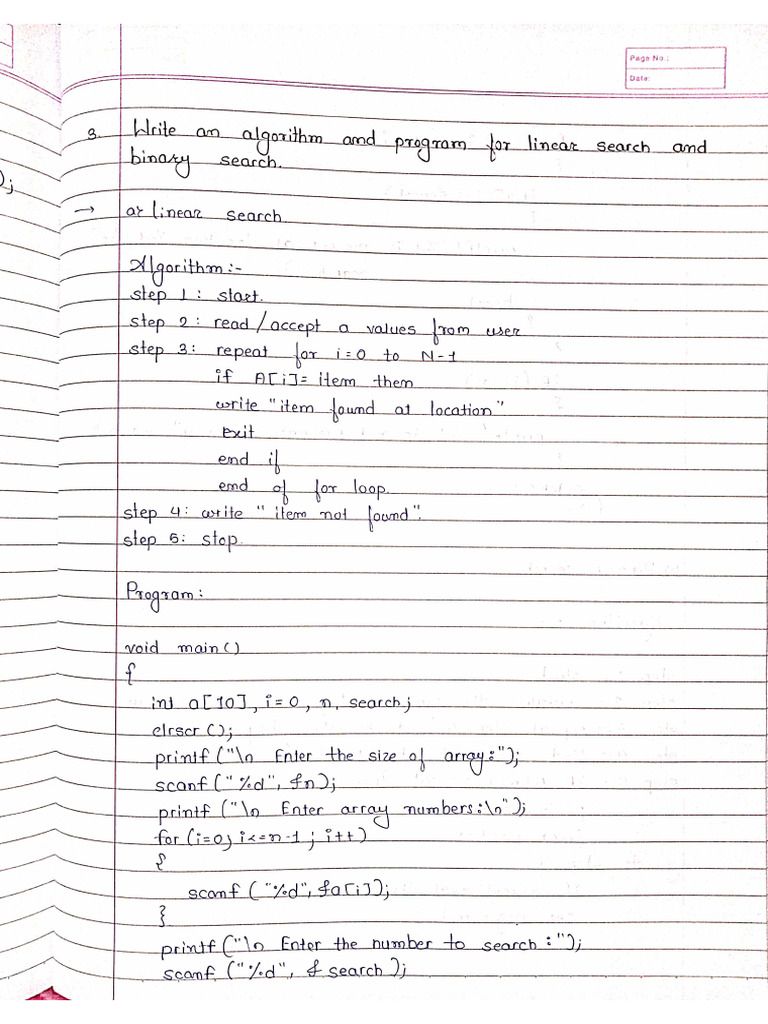 Page No.:
Date:
3. Write an algorithm and program for linear search and
binary search.
);
→ a> linear search
Algorithm:-
step 1: start.
step 2: read/accept a values from user
step 3: repeat for i=0 to N-1
if A[i]= item then
write "item found at location"
Exit
end if
end of for loop.
step 4: write "item not found".
step 5: stop.
Program:
void main()
{
int a[10], i=0, n, search;
clrscr();
printf("\n Enter the size of array:");
scanf("%d", &n);
printf("\n Enter array numbers:\n");
for(i=0; i<=n-1; i++)
{
scanf("%d", &a[i]);
}
printf("\n Enter the number to search:");
scanf("%d", &search);